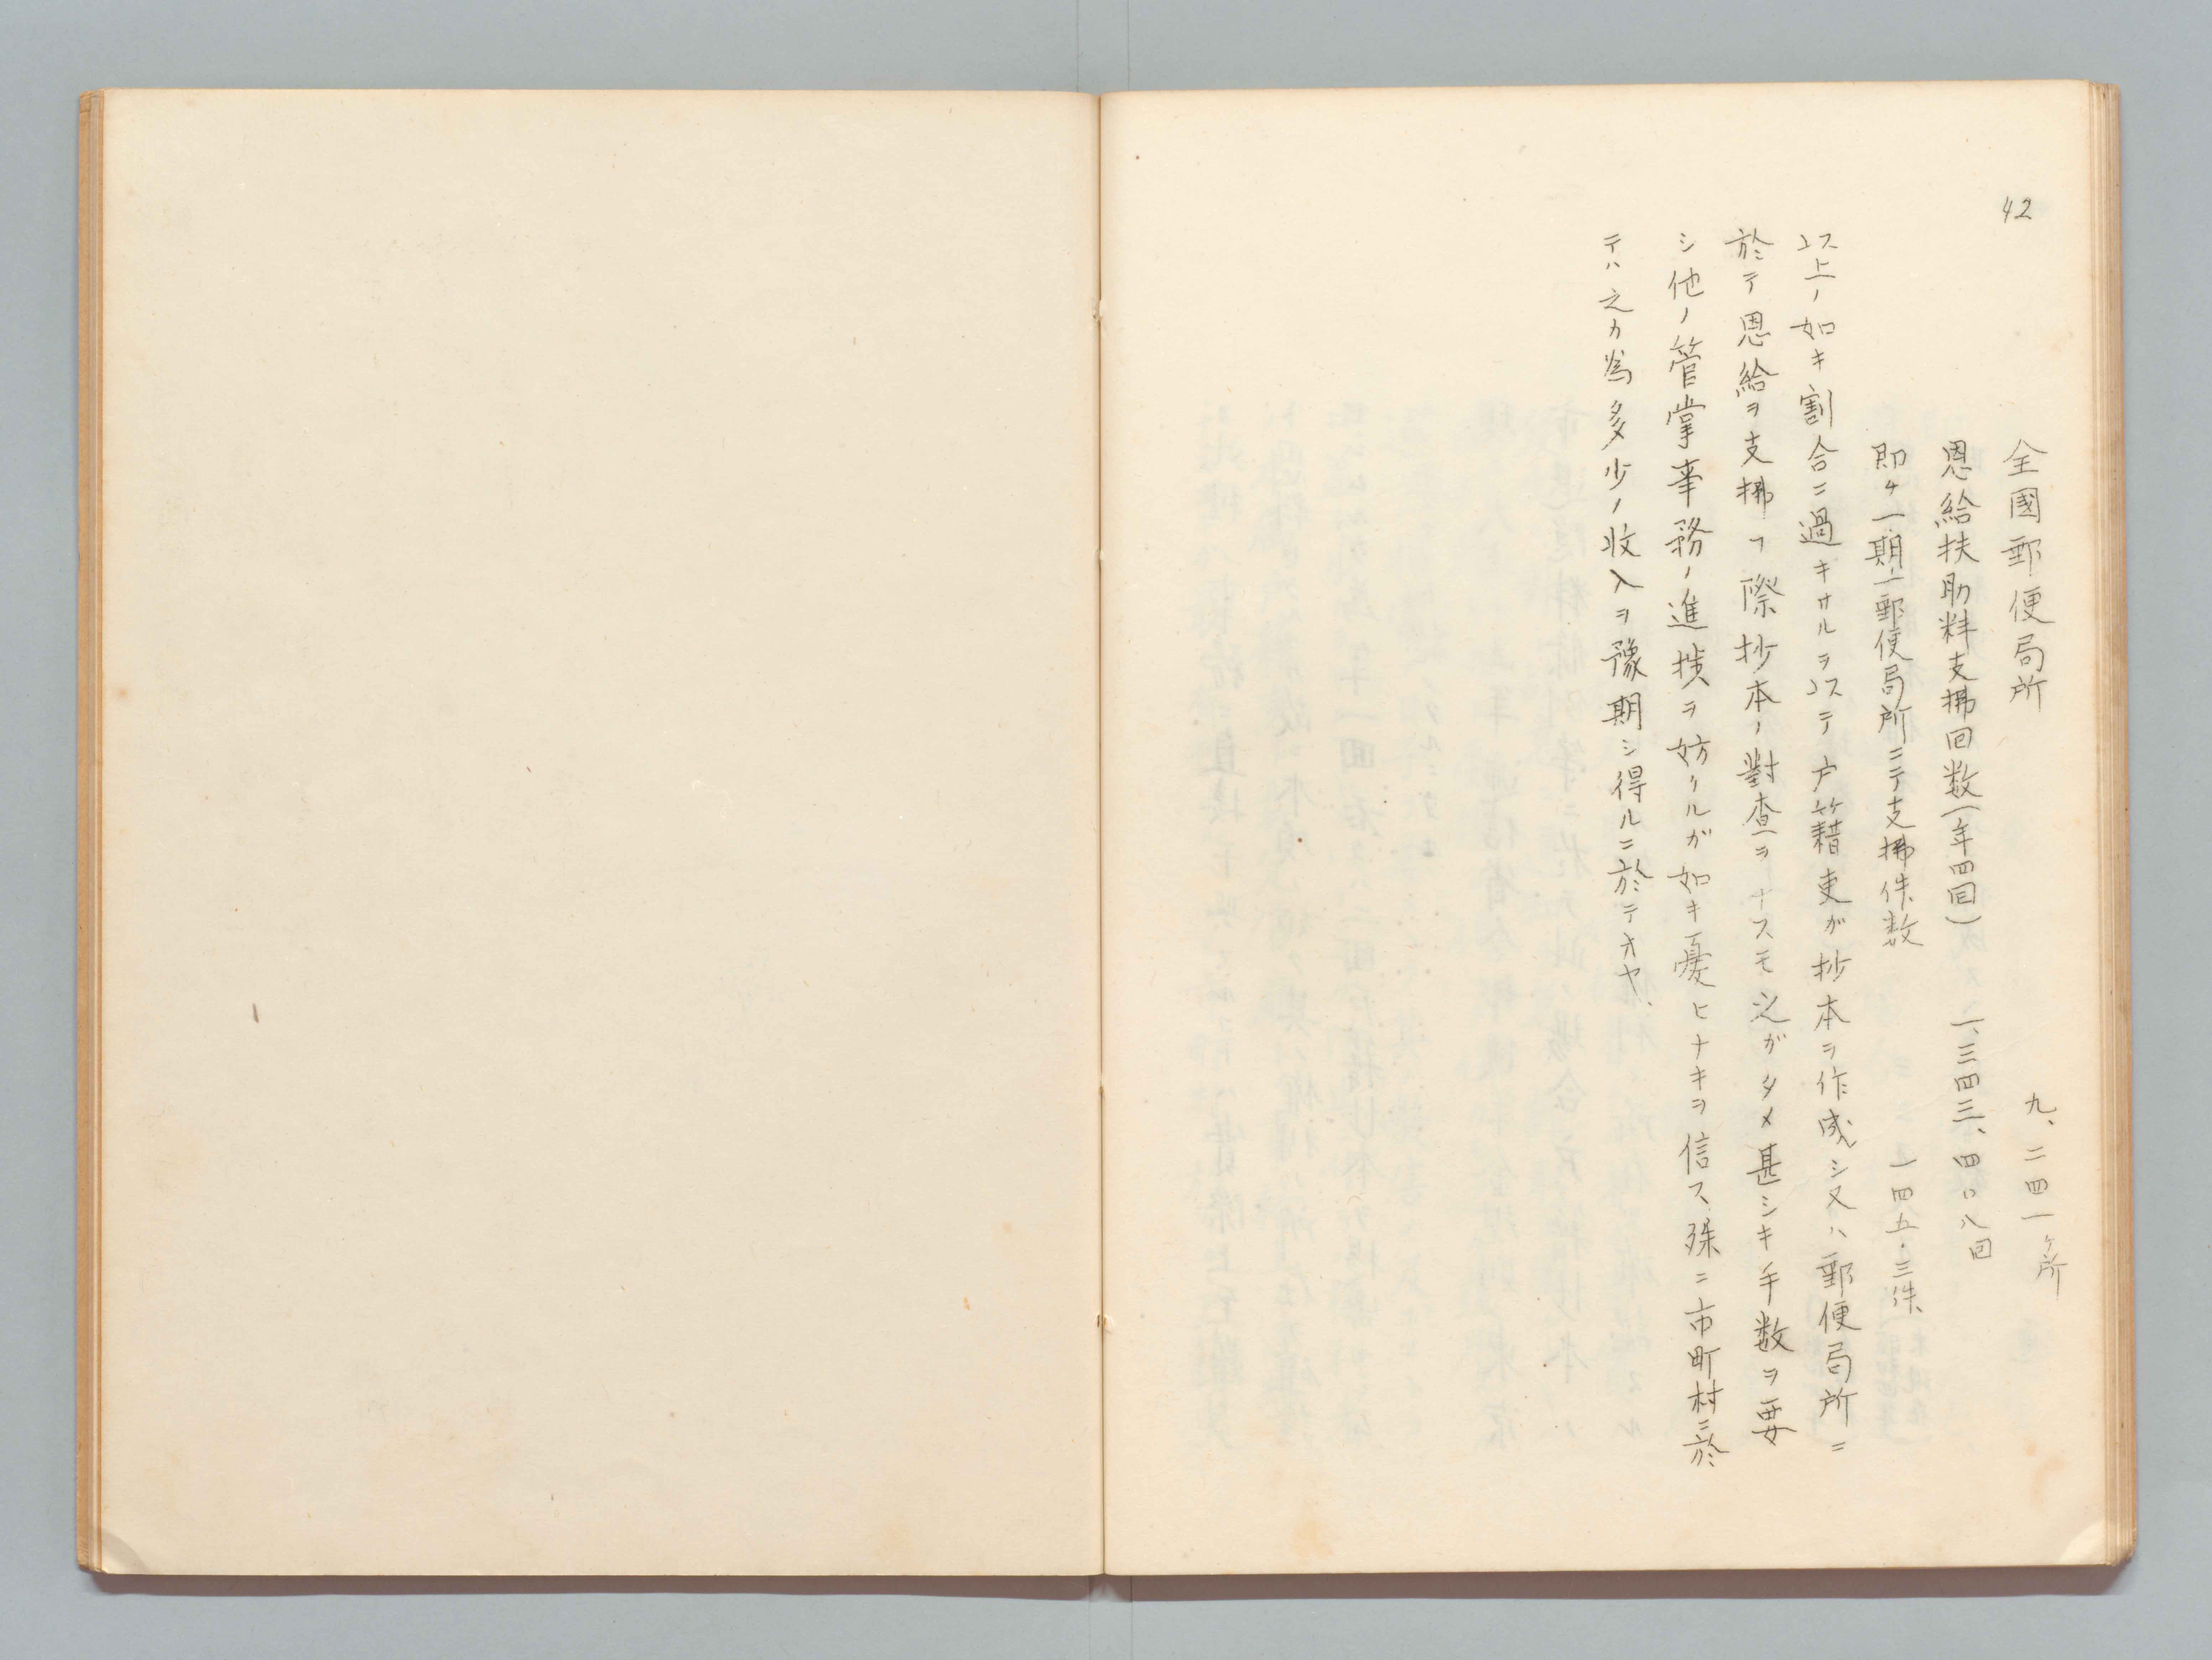 42
全國郵便局所 九、二四一ヶ所
恩給扶助料支拂回数(年四回) 一、三四三、四〇八回
即チ一期一郵便局所ニテ支拂件数 一四五.三件
以上ノ如キ割合ニ過キサルヲ以テ戸籍吏が抄本ヲ作成シ又ハ郵便局所ニ
於テ恩給ヲ支拂フ際抄本ノ對査ヲナスモ之がタメ甚シキ手数ヲ要
シ他ノ管掌事務ノ進捗ヲ妨クルが如キ憂ヒナキヲ信ス、殊ニ市町村ニ於
テハ之カ為多少ノ收入ヲ豫期シ得ルニ於テオヤ、